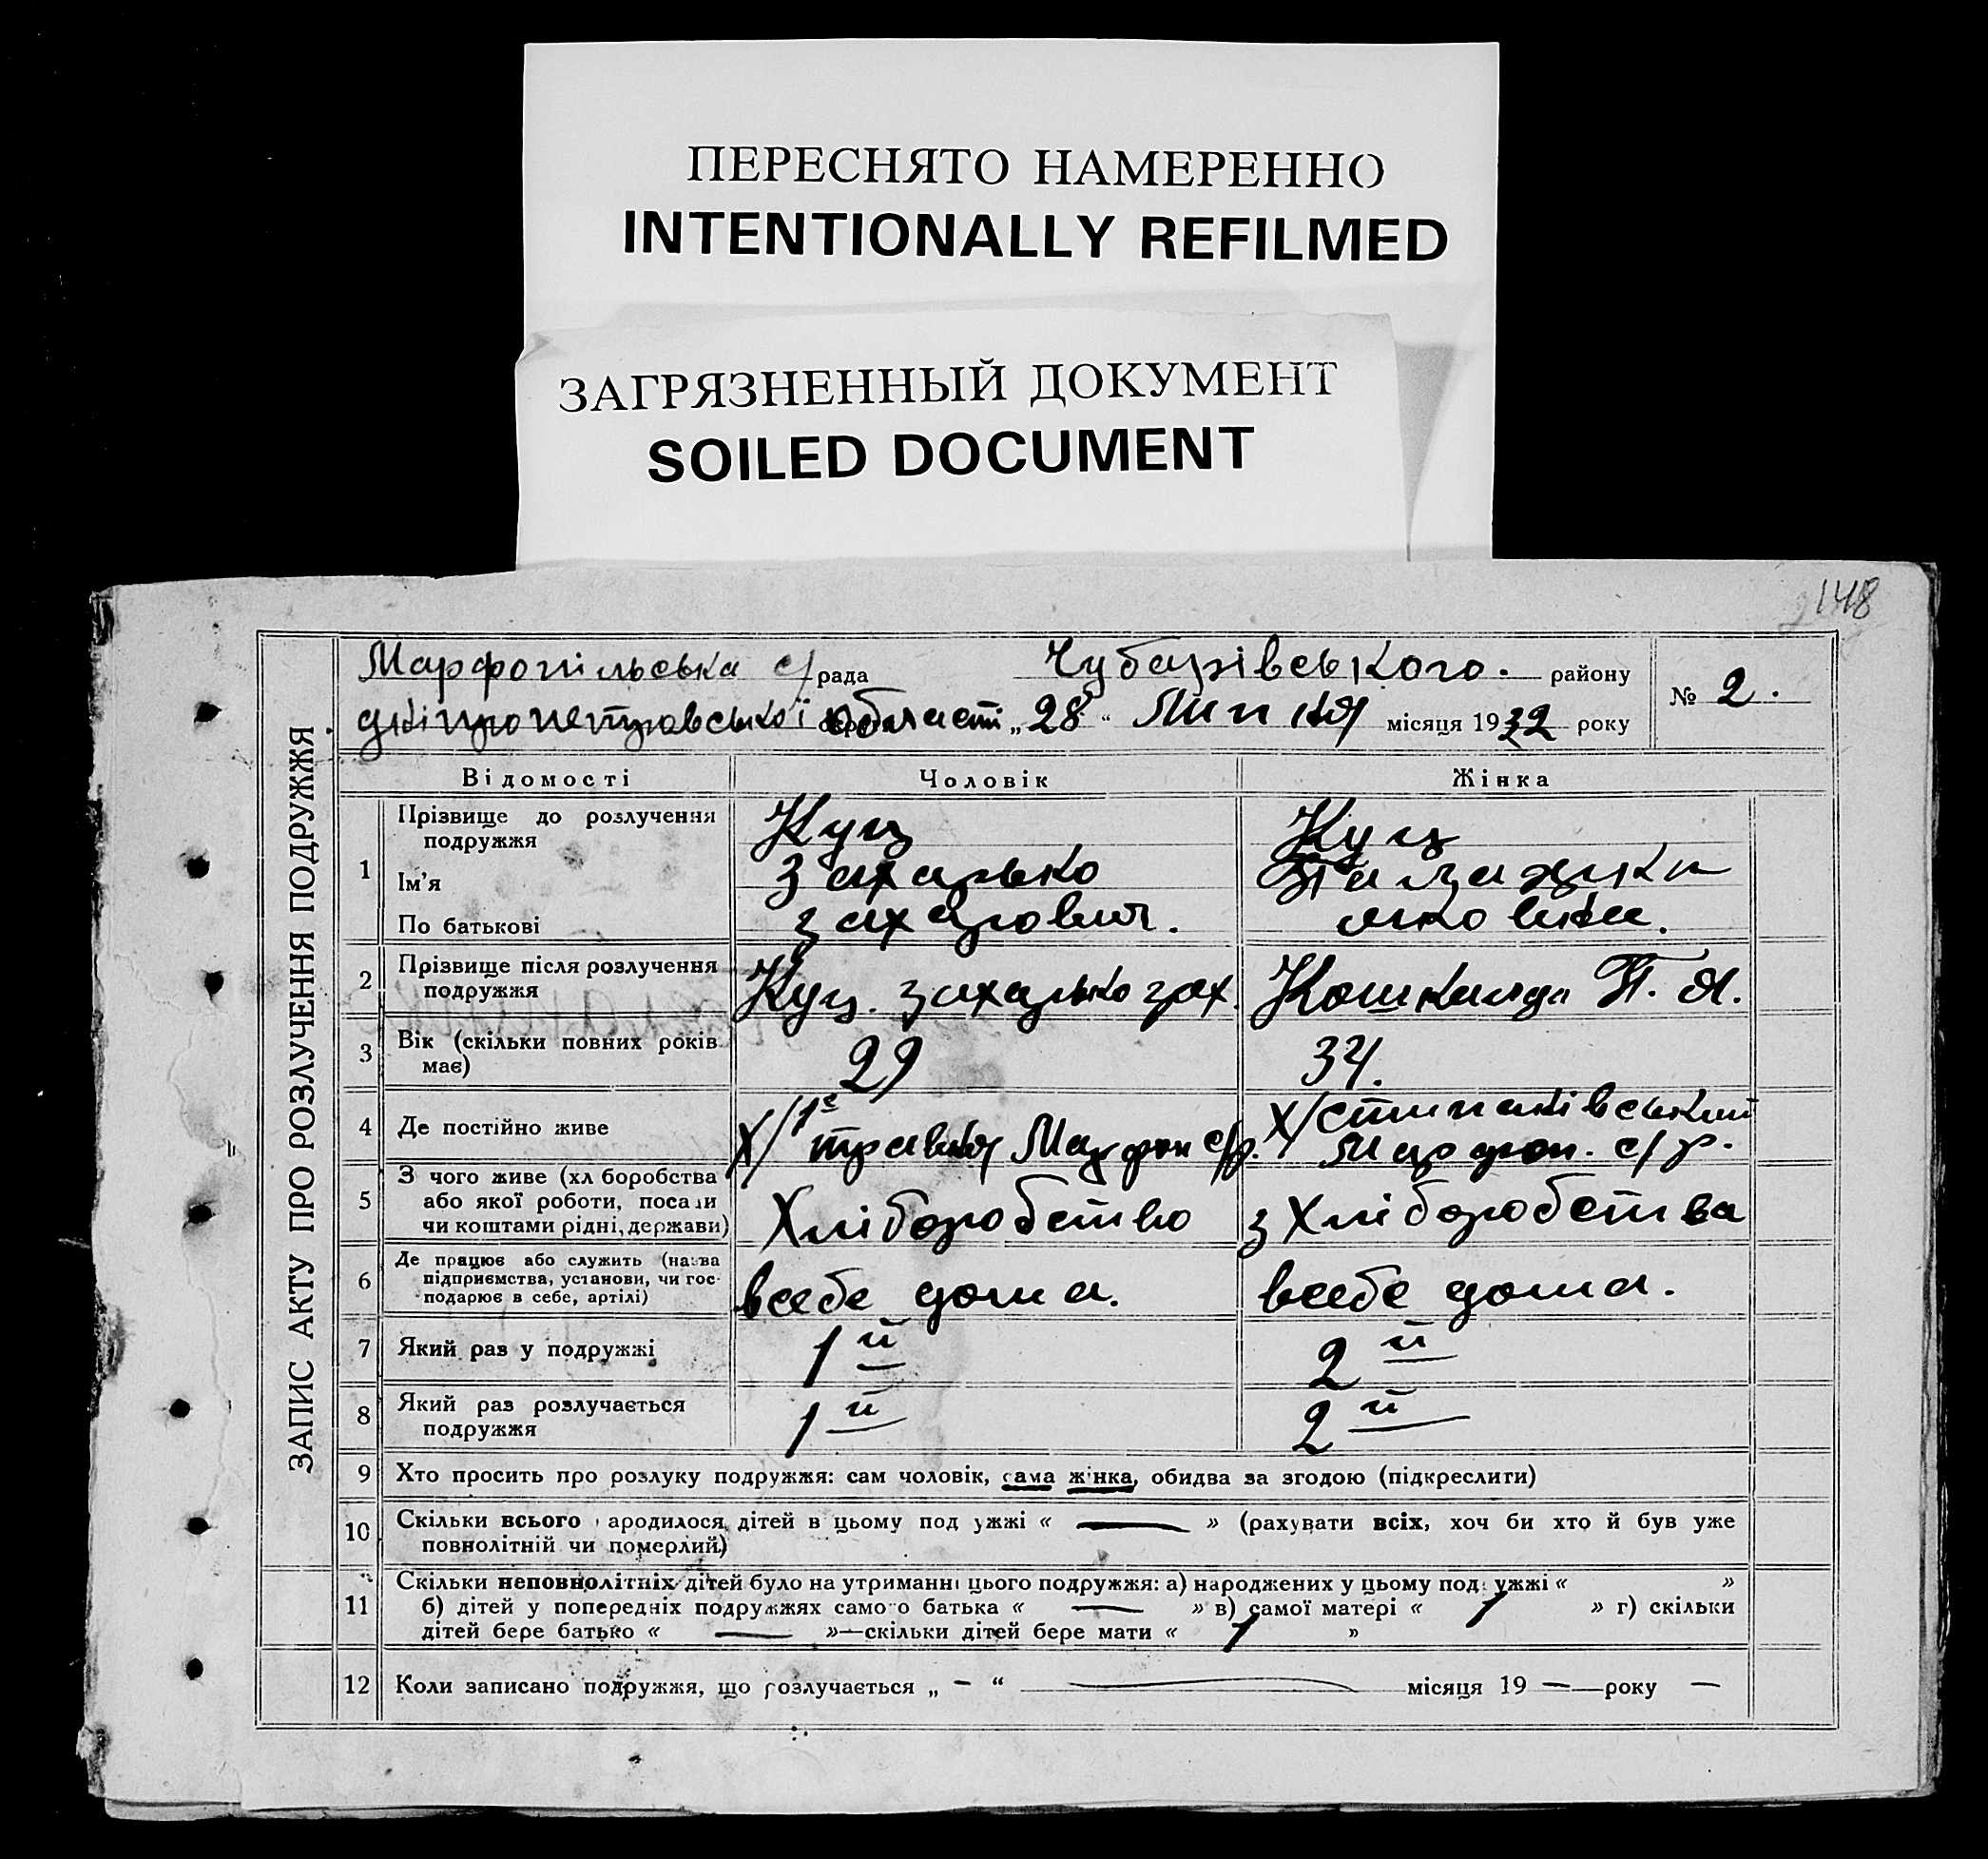 ПЕРЕСНЯТО НАМЕРЕННО
INTENTIONALLY REFILMED
ЗАГРЯЗНЕННЫЙ ДОКУМЕНТ
SOILED DOCUMENT
148
ЗАПИС АКТУ ПРО РОЗЛУЧЕННЯ ПОДРУЖЖЯ
Марфопільська с/рада Чубарівського. району
№ 2.
Дніпропетровської області „28“ Липня місяця 1932 року
Відомості Чоловік Жінка
1 Прізвище до розлучення подружжя Куц Куц
Ім’я Захарько
По батькові Захарович.
2 Прізвище після розлучення подружжя Куц. Захарько Зах. Кошкалда П. Я.
3 Вік (скільки повних років має) 29 34.
4 Де постійно живе х/1е травня Марфоп с/р. х/Степанівський Марфоп. с/р.
5 З чого живе (хліборобства або якої роботи, посади чи коштами рідні, держави) Хліборобство з Хліборобства
6 Де працює або служить (назва підприємства, установи, чи господарює в себе, артілі) всебе дома. всебе дома.
7 Який раз у подружжі 1й 2й
8 Який раз розлучається подружжя 1й 2й
9 Хто просить про розлуку подружжя: сам чоловік, сама жінка, обидва за згодою (підкреслити)
10 Скільки всього народилося дітей в цьому подружжі « — » (рахувати всіх, хоч би хто й був уже
повнолітній чи померлий)
11 Скільки неповнолітніх дітей було на утриманні цього подружжя: а) народжених у цьому подружжі « »
б) дітей у попередніх подружжях самого батька « — » в) самої матері « 1 » г) скільки
дітей бере батько « — »—скільки дітей бере мати « 1 »
12 Коли записано подружжя, що розлучається „ – “ — місяця 19 — року —